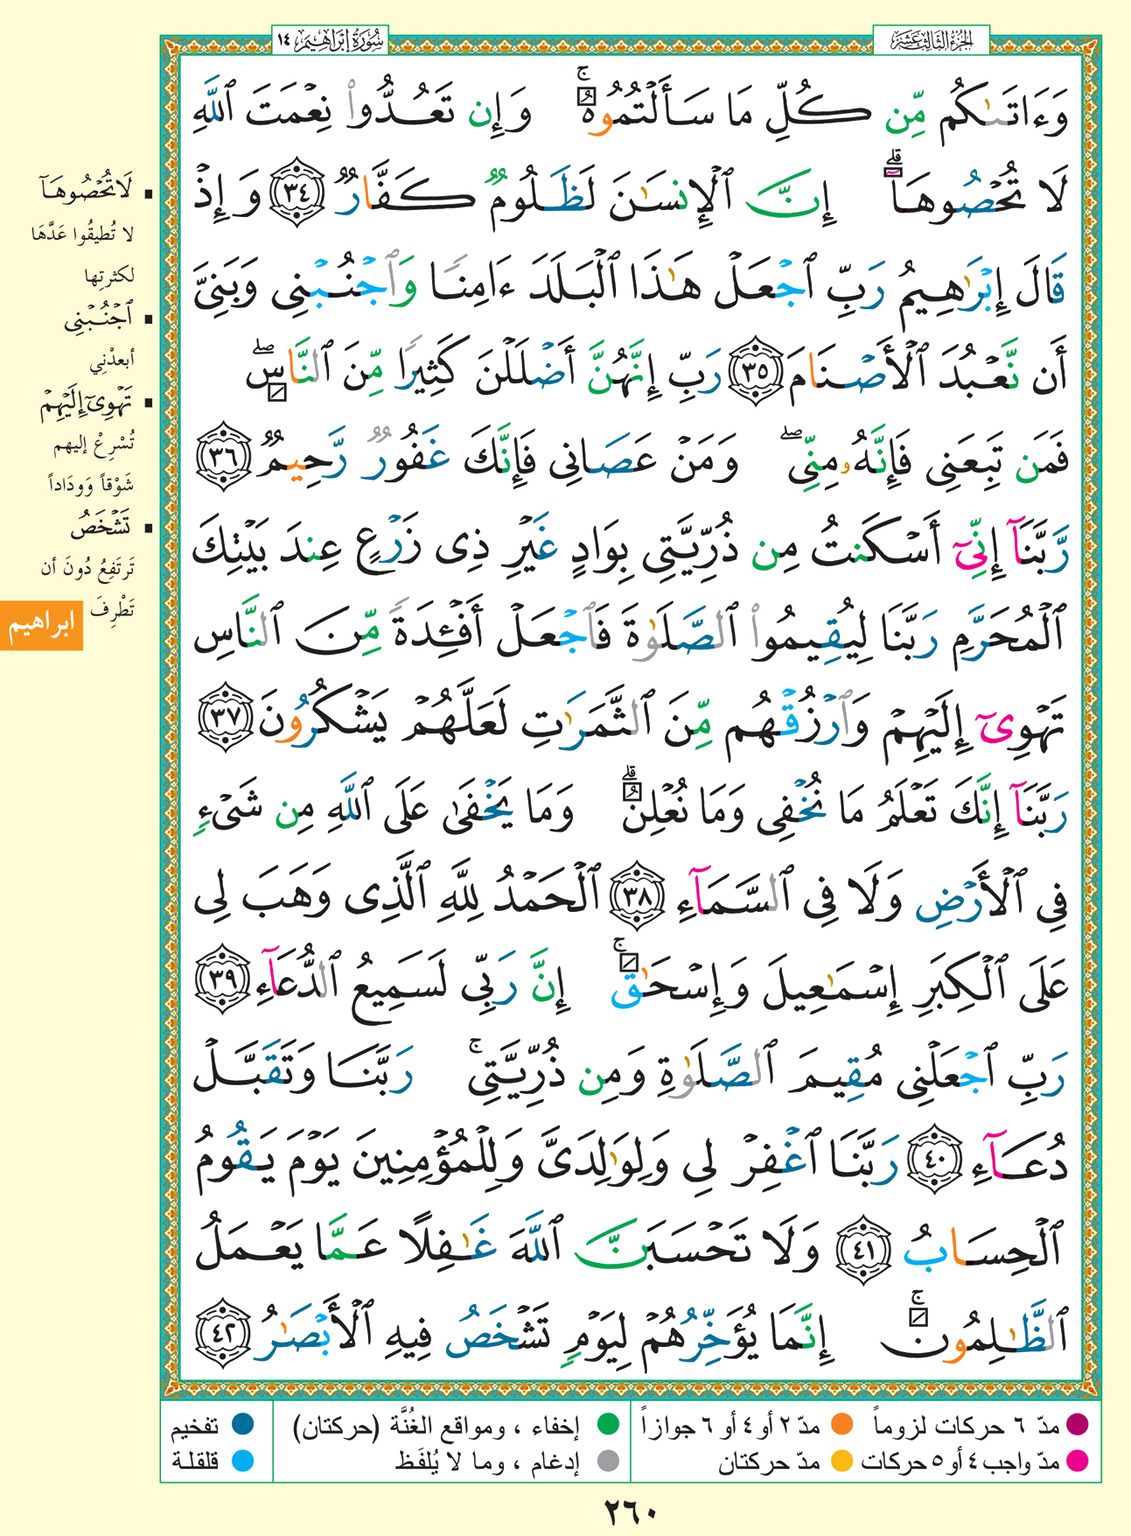 الجزء الثالث عشر
سورة إبراهيم ١٤
وَءَاتَىٰكُم مِّن كُلِّ مَا سَأَلْتُمُوهُ ۚ وَإِن تَعُدُّوا۟ نِعْمَتَ ٱللَّهِ
لَا تُحْصُوهَآ ۗ إِنَّ ٱلْإِنسَـٰنَ لَظَلُومٌ كَفَّارٌ ٣٤ وَإِذْ
قَالَ إِبْرَٰهِيمُ رَبِّ ٱجْعَلْ هَـٰذَا ٱلْبَلَدَ ءَامِنًا وَٱجْنُبْنِى وَبَنِىَّ
أَن نَّعْبُدَ ٱلْأَصْنَامَ ٣٥ رَبِّ إِنَّهُنَّ أَضْلَلْنَ كَثِيرًا مِّنَ ٱلنَّاسِ ۖ
فَمَن تَبِعَنِى فَإِنَّهُۥ مِنِّى ۖ وَمَنْ عَصَانِى فَإِنَّكَ غَفُورٌ رَّحِيمٌ ٣٦
رَّبَّنَآ إِنِّىٓ أَسْكَنتُ مِن ذُرِّيَّتِى بِوَادٍ غَيْرِ ذِى زَرْعٍ عِندَ بَيْتِكَ
ٱلْمُحَرَّمِ رَبَّنَا لِيُقِيمُوا۟ ٱلصَّلَوٰةَ فَٱجْعَلْ أَفْـِٔدَةً مِّنَ ٱلنَّاسِ
تَهْوِىٓ إِلَيْهِمْ وَٱرْزُقْهُم مِّنَ ٱلثَّمَرَٰتِ لَعَلَّهُمْ يَشْكُرُونَ ٣٧
رَبَّنَآ إِنَّكَ تَعْلَمُ مَا نُخْفِى وَمَا نُعْلِنُ ۗ وَمَا يَخْفَىٰ عَلَى ٱللَّهِ مِن شَىْءٍ
فِى ٱلْأَرْضِ وَلَا فِى ٱلسَّمَآءِ ٣٨ ٱلْحَمْدُ لِلَّهِ ٱلَّذِى وَهَبَ لِى
عَلَى ٱلْكِبَرِ إِسْمَـٰعِيلَ وَإِسْحَـٰقَ ۚ إِنَّ رَبِّى لَسَمِيعُ ٱلدُّعَآءِ ٣٩
رَبِّ ٱجْعَلْنِى مُقِيمَ ٱلصَّلَوٰةِ وَمِن ذُرِّيَّتِى ۚ رَبَّنَا وَتَقَبَّلْ
دُعَآءِ ٤٠ رَبَّنَا ٱغْفِرْ لِى وَلِوَٰلِدَىَّ وَلِلْمُؤْمِنِينَ يَوْمَ يَقُومُ
ٱلْحِسَابُ ٤١ وَلَا تَحْسَبَنَّ ٱللَّهَ غَـٰفِلًا عَمَّا يَعْمَلُ
ٱلظَّـٰلِمُونَ ۚ إِنَّمَا يُؤَخِّرُهُمْ لِيَوْمٍ تَشْخَصُ فِيهِ ٱلْأَبْصَـٰرُ ٤٢
لَا تُحْصُوهَآ
لا تُطيقُوا عَدَّهَا
لكثرتِها
ٱجْنُبْنِى
أبعدْنِي
تَهْوِىٓ إِلَيْهِمْ
تُسْرِعُ إليهم
شَوْقاً وَودَاداً
تَشْخَصُ
تَرتَفِعُ دُونَ أن
تَطْرِفَ
ابراهيم
مدّ ٦ حركات لزوماً
مدّ ٢ أو ٤ أو ٦ جوازاً
إخفاء ، ومواقع الغُنَّة (حركتان)
تفخيم
مدّ واجب ٤ أو ٥ حركات
مدّ حركتان
إدغام ، وما لا يُلفَظ
قلقلة
٢٦٠